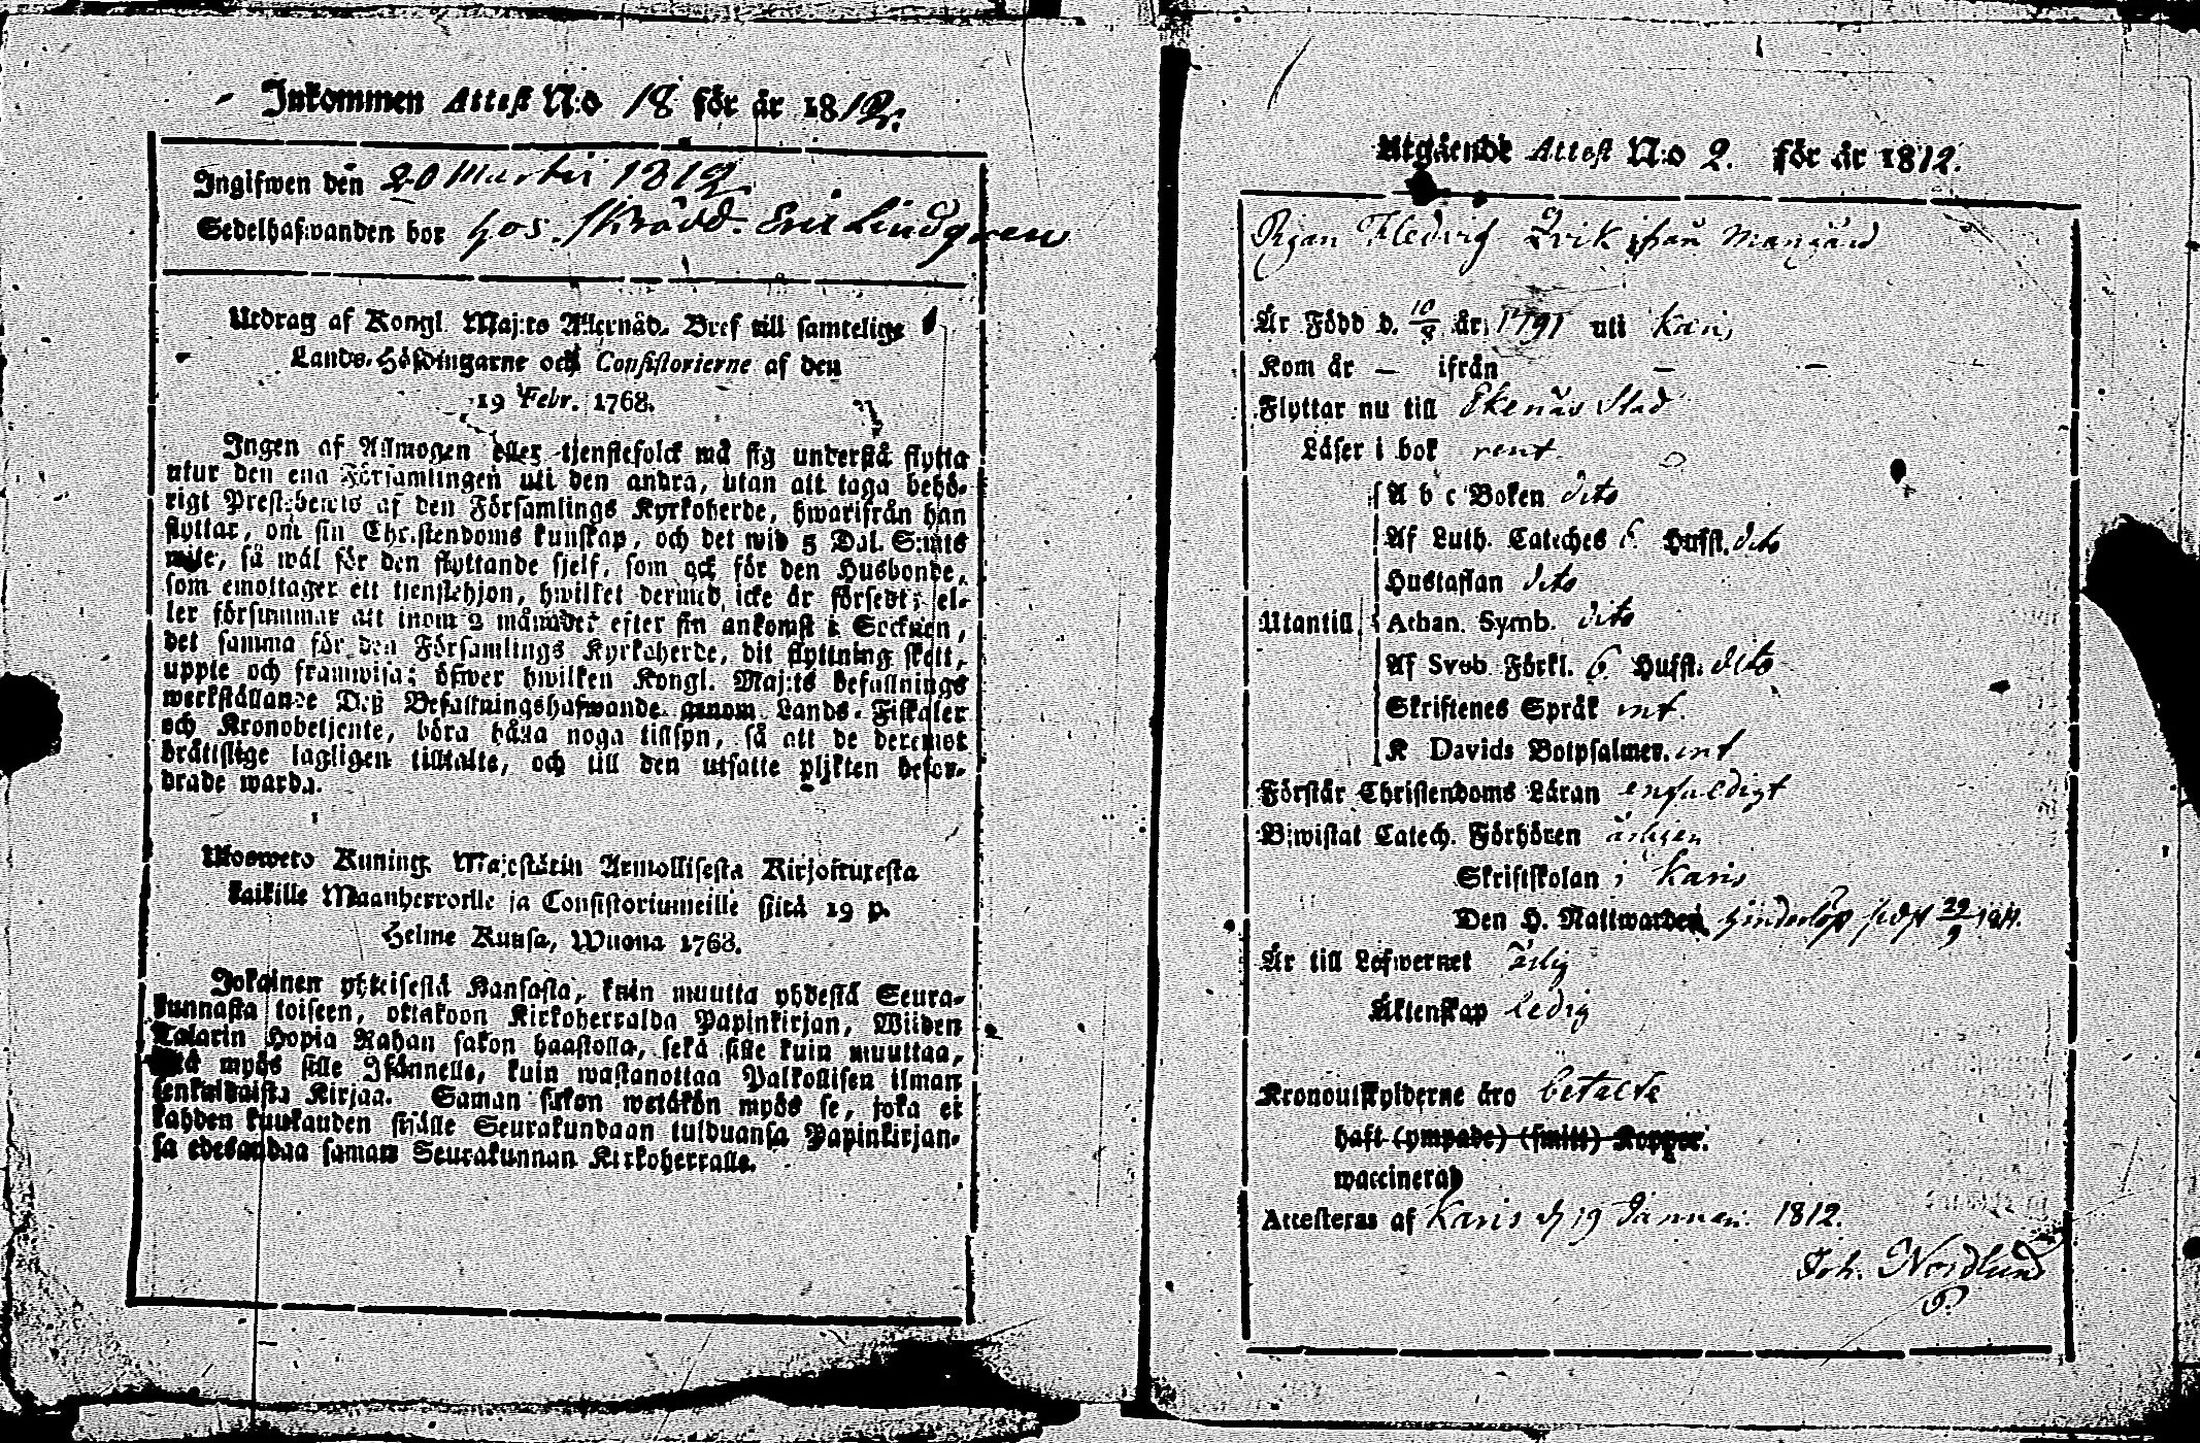 Inkommen Attest N:o 18 för år 1812.
Ingifwen den 20 Martii 1812
Sedelhafwanden bor hos Skrädd. Eric Lindgren
Utdrag af Kongl. Maj:ts Allernåd. Bref till samtelige
Lands-Höfdingarne och Consistorierne af den
19 Febr. 1768.
Ingen af Allmogen eller tjenstefolck må sig understå flytta
utur den ena Församlingen uti den andra, utan att taga behö-
rigt Prestbewis af den Församlings Kyrkoherde, hwarifrån han
flyttar, om sin Christendoms kunskap, och det wid 5 Dal. S:mts
wite, så wäl för den flyttande sjelf, som ock för den Husbonde,
som emottager ett tjenstehjon, hwilket dermed icke är försedt; el-
ler försummar att inom 2 månader efter sin ankomst i Socknen,
det samma för den Församlings Kyrkoherde, dit flyttning skett,
uppte och framwisa; öfwer hwilken Kongl. Maj:ts befallnings
werkställande Deß Befallningshafwande genom Lands-Fiskaler
och Kronobetjente, böra hålla noga tillsyn, så att de deremot
brätislige lagligen tilltalte, och till den utsatte plikten befor-
drade warda.
Ulosweto Kuning. Majestätin Armollisesta Kirjoituxesta
kaikille Maanherroille ja Consistoriumeille siitä 19 p.
Helme Kuusa, Wuona 1768.
Jokainen yhteisestä Kansasta, kuin muutta yhdestä Seura-
kunnasta toiseen, ottakoon Kirkoherralda Papinkirjan, Wiiden
Talarin Hopia Rahan sakon haastolla, sekä sille kuin muuttaa,
että myös sille Isännelle, kuin wastanottaa Palkollisen ilman
senkaltaista Kirjaa. Saman sakon wetäkön myös se, joka ei
kahden kuukauden sisälle Seurakundaan tulduansa Papinkirjan-
sa edesandaa saman Seurakunnan Kirkoherralle.
Utgående Attest N:o 2. för år 1812.
Pigan Hedvig från
Är Född d. 10/8 år 1791 uti Karis
Kom år — ifrån —
Flyttar nu till Ekenäs Stad
Läser i bok rent
A b c Boken dito
Af Luth. Cateches 6 Hufst. dito
Hustaflan dito
Utantill Athan. Symb. dito
Af Sveb. Förkl. 6 Hufst. dito
Skriftenes Språk int.
K Davids Botpsalmer. int
Förstår Christendoms Läran enfaldigt
Biwistat Catech. Förhören årligen
Skriftskolan i Karis
Den H. Nattwarden hinderlöst sidst 29/9 1811.
Är till Lefwernet ärlig
Äktenskap ledig
Kronoutskylderne äro betalte
haft (ympade) (smitt) Koppor.
waccinerad
Attesteras af Karis d 19 Januari 1812.
Joh. Nordlund
P.